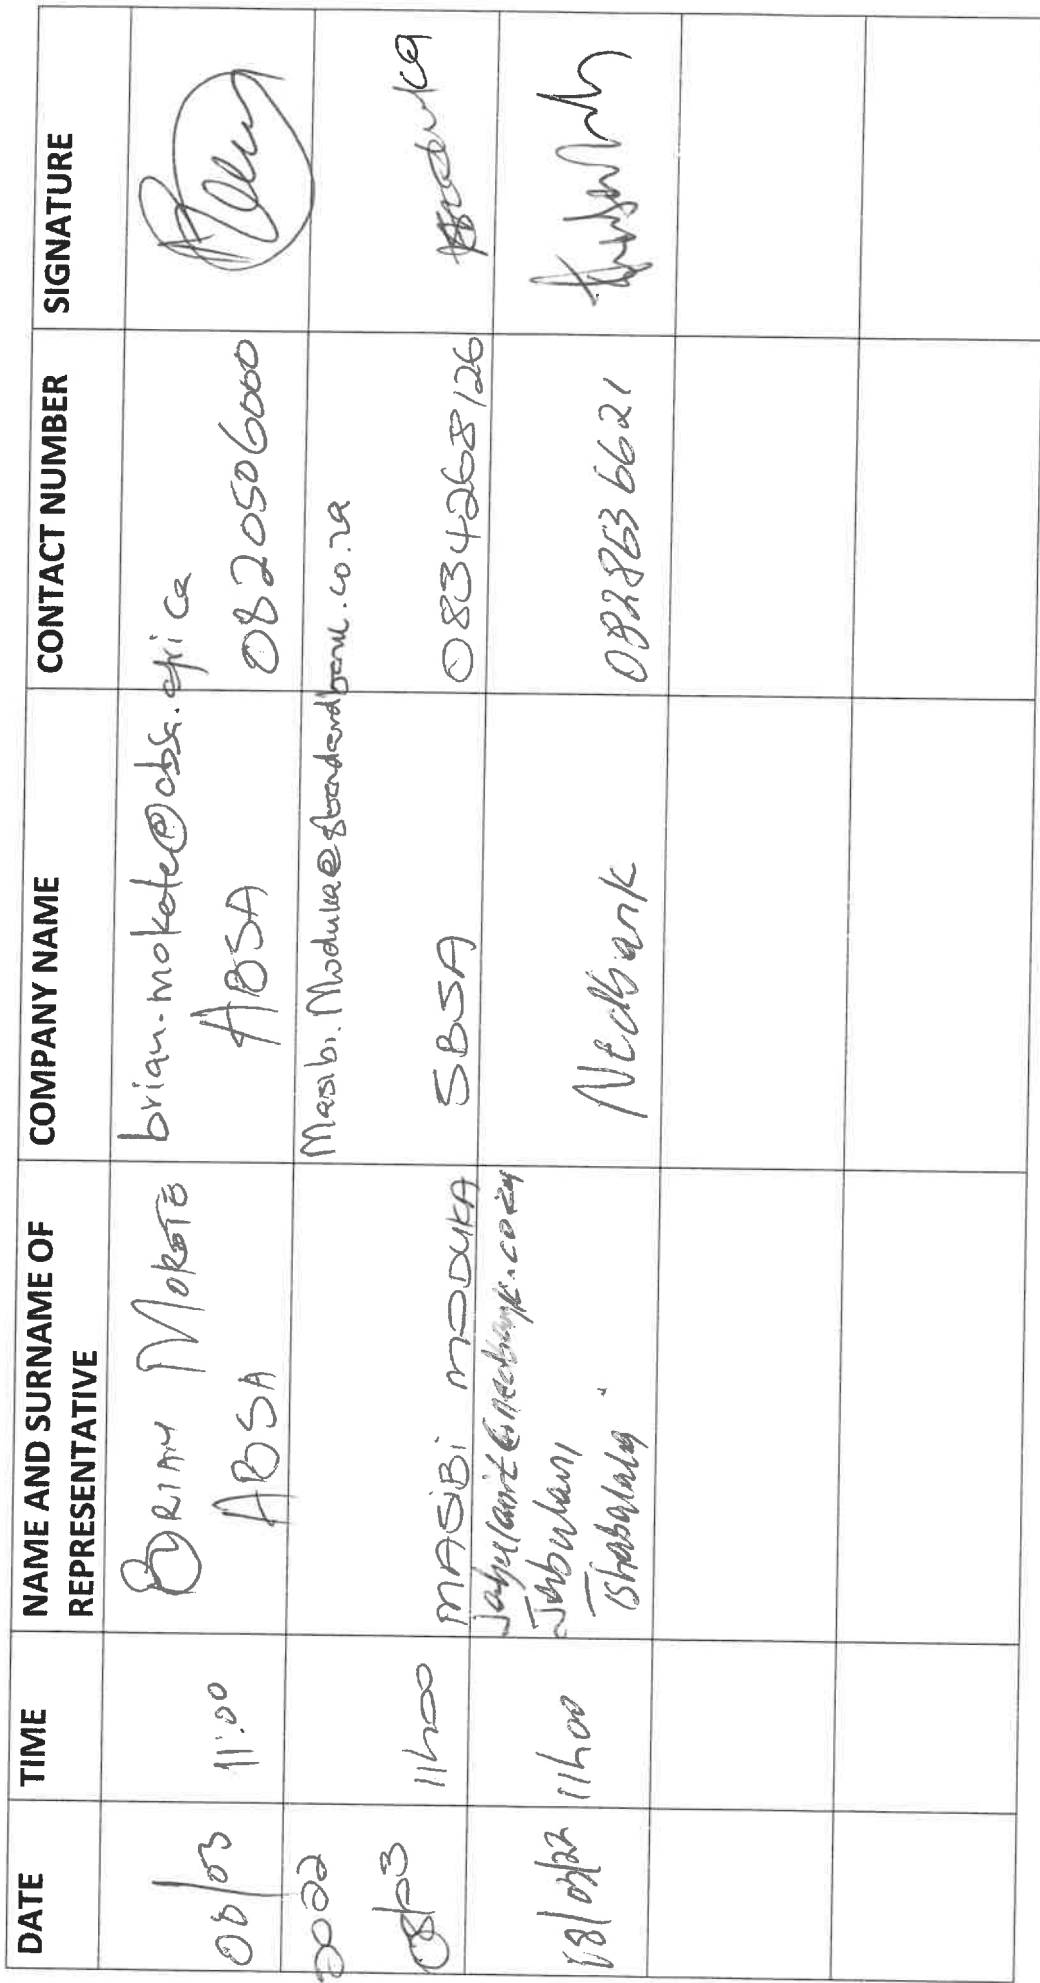 DATE
TIME
NAME AND SURNAME OF
REPRESENTATIVE
COMPANY NAME
CONTACT NUMBER
SIGNATURE
08/03
11:00
BRIAN MOKOTE
ABSA
brian.mokote@absa.africa
ABSA
0820506000
2022
08/03
11h00
MASIBI MODUKA
Masibi.Moduka@standardbank.co.za
SBSA
0834268126
08/03/22
11h00
Jabulani
Tshabalala
Nedbank
0828636621